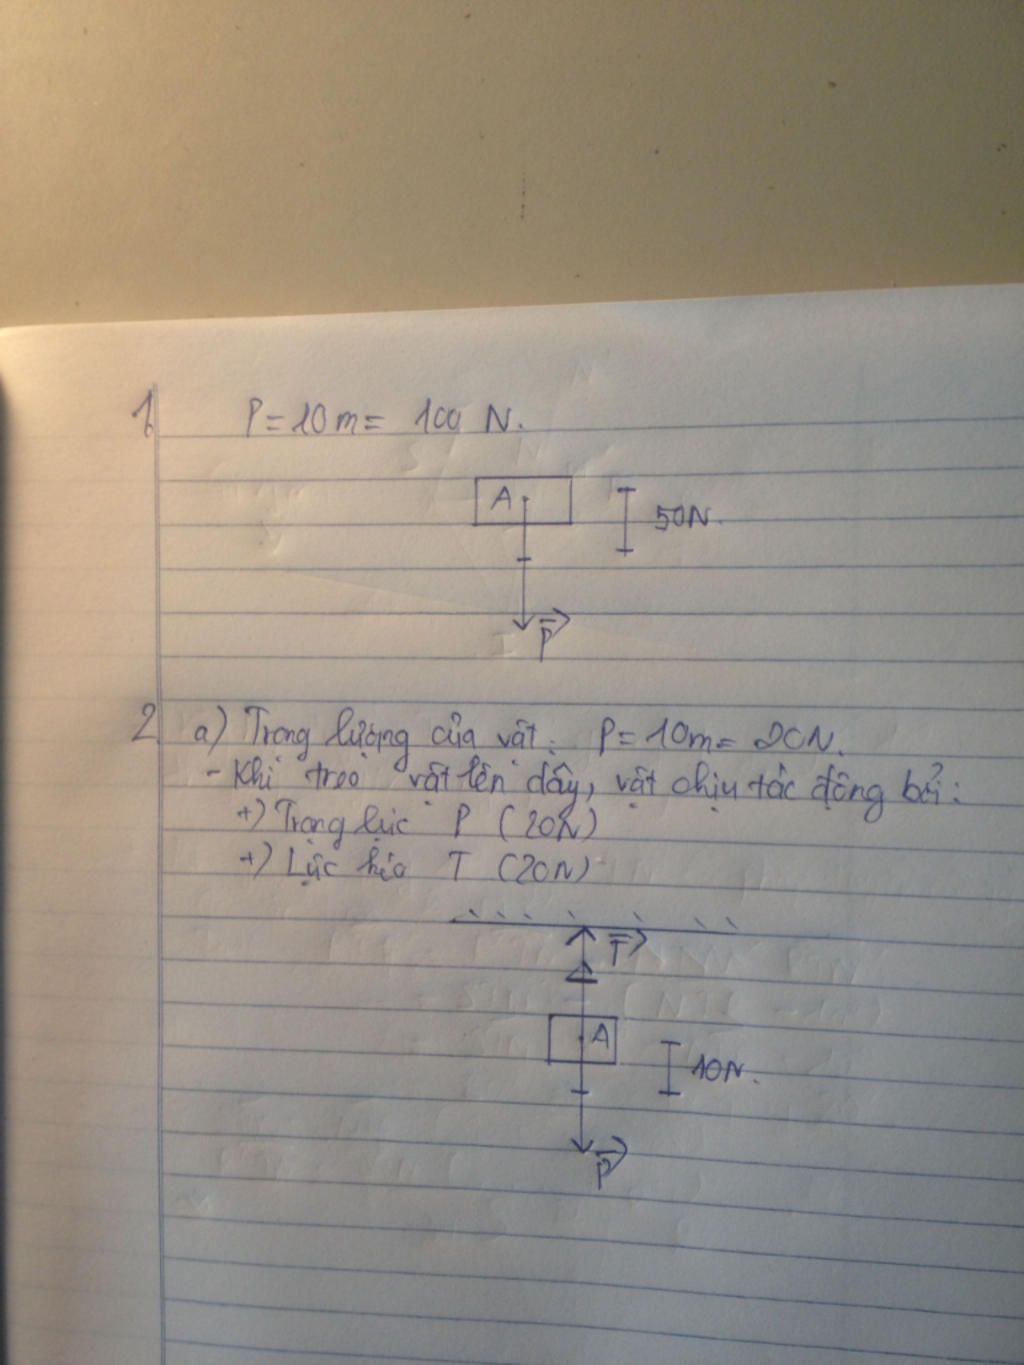 1, P = 10m = 100 N.
A
50N.
P
2 a) Trọng lượng của vật: P = 10m = 20N.
- Khi treo vật lên dây, vật chịu tác động bởi:
+) Trọng lực P (20N)
+) Lực kéo T (20N)
T
A
10N.
P